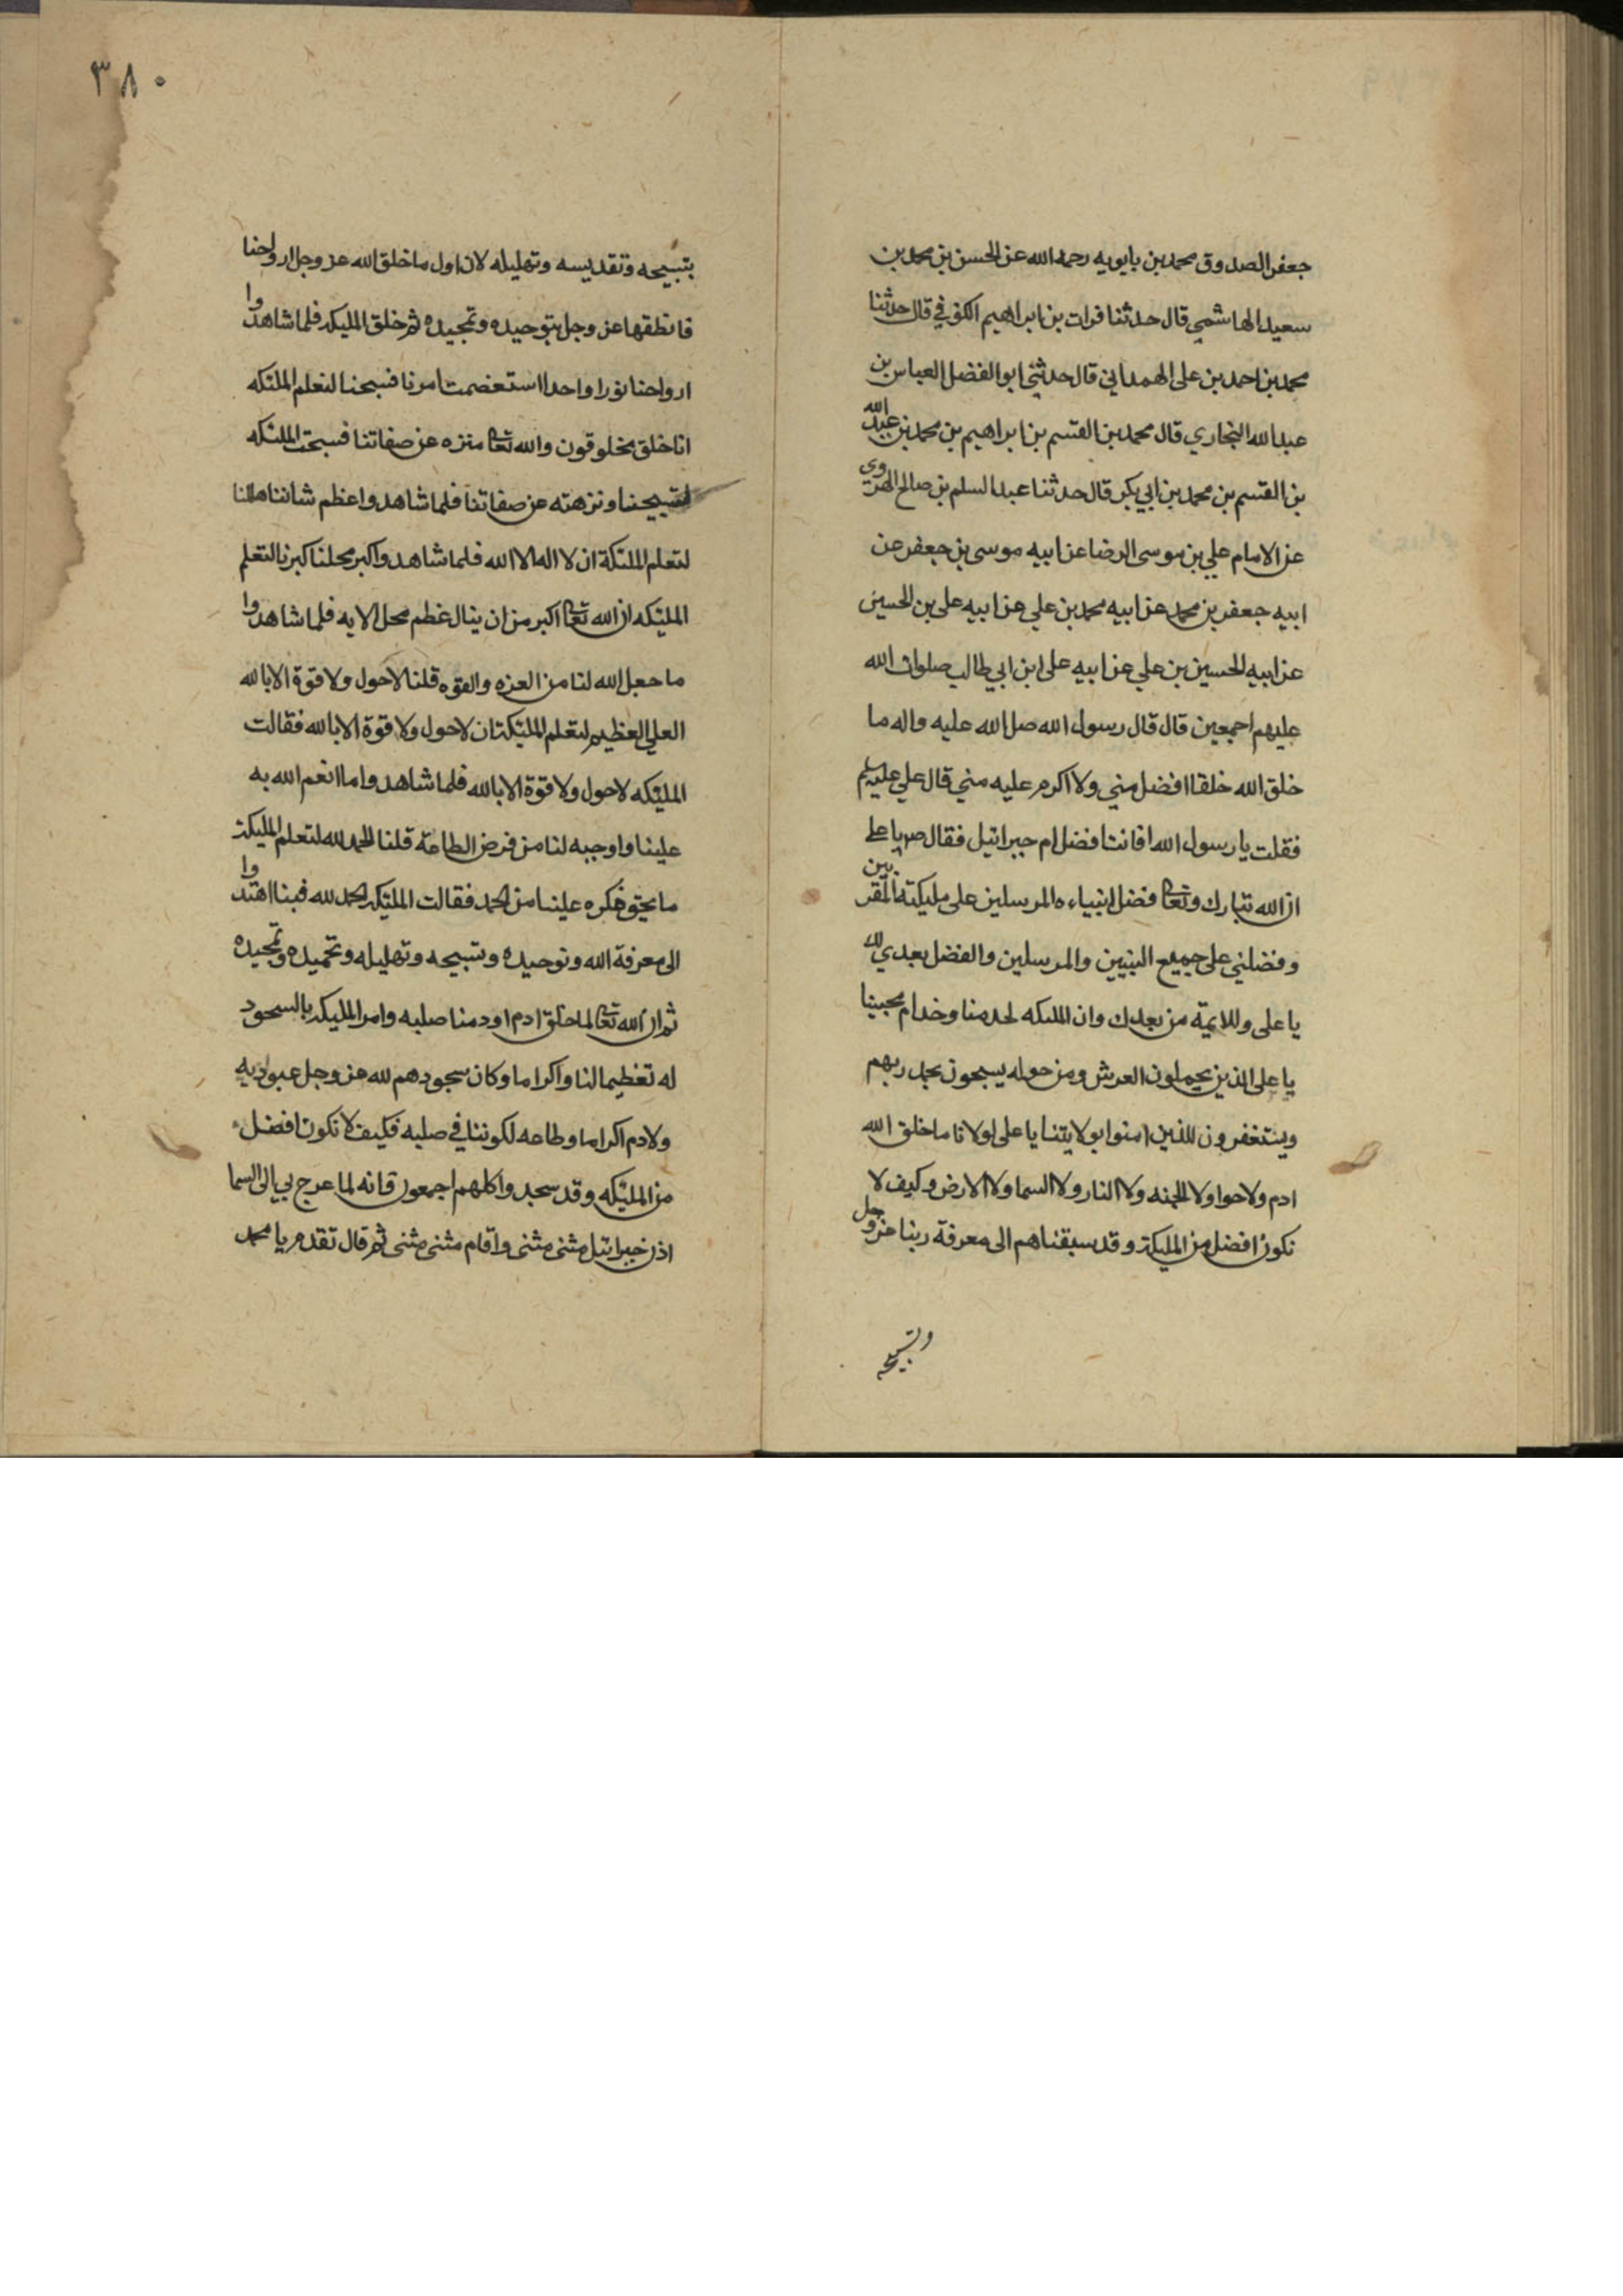 جعفر الصدوق محمد بن بابويه رحمه الله عن الحسن بن محمد بن
سعيد الهاشمي قال حدثنا فرات بن ابراهيم الكوفي قال حدثنا
محمد بن احمد بن علي الهمداني قال حدثني ابو الفضل العباس بن
عبد الله البخاري قال محمد بن القسم بن ابراهيم بن محمد بن عبد الله
بن القسم بن محمد بن ابي بكر قال حدثنا عبد السلم بن صالح الهروي
عن الامام علي بن موسى الرضا عن ابيه موسى بن جعفر عن
ابيه جعفر بن محمد عن ابيه محمد بن علي عن ابيه علي بن الحسين
عن ابيه الحسين بن علي عن ابيه علي ابن ابي طالب صلوات الله
عليهم اجمعين قال قال رسول الله صل الله عليه واله ما
خلق الله خلقا افضل مني ولا اكرم عليه مني قال علي عليه السلم
فقلت يا رسول الله افانت افضل ام جبرائيل فقال ص يا علي
ان الله تبارك وتعا فضل انبياءه المرسلين على مليكته المقربين
وفضلني على جميع النبيين والمرسلين والفضل بعدي لك
يا علي وللايمة من بعدك وان الملىكه لخدمنا وخدام محبينا
يا علي الذين يحملون العرش ومن حوله يسبحون بحمد ربهم
ويستغفرون للذين امنوا بولايتنا يا علي لولانا ما خلق الله
ادم ولا حوا ولا الجنه ولا النار ولا السما ولا الارض وكيف لا
نكون افضل من المليكة وقد سبقناهم الى معرفة ربنا عز وجل
وتسبيحه
٣٨٠
بتسبيحه وتقديسه وتهليله لان اول ما خلق الله عز وجل ارواحنا
فانطقها عز وجل بتوحيده وتمجيده ثم خلق المليكه فلما شاهدوا
ارواحنا نورا واحدا استعضمت امرنا فسبحنا لتعلم الملئكه
انا خلق مخلوقون والله تعا منزه عن صفاتنا فسبحت الملئكه
لتسبيحنا ونزهته عن صفاتنا فلما شاهدوا عظم شاننا هللنا
لتعلم الملئكة ان لا اله الا الله فلما شاهدوا كبر محلنا كبرنا لتعلم
المليئكه ان الله تعا اكبر من ان ينال عظم محل الا به فلما شاهدوا
ما جعل الله لنا من العزه والقوه قلنا لا حول ولا قوة الا بالله
العلي العظيم لتعلم المليئكة ان لا حول ولا قوة الا بالله فقالت
المليئكه لا حول ولا قوة الا بالله فلما شاهدوا ما انعم الله به
علينا واوجبه لنا من فرض الطاعة قلنا الحمد لله لتعلم المليكة
ما يحق ذكره علينا من الحمد فقالت المليئكه الحمد لله فبنا اهتدوا
الى معرفة الله وتوحيده وتسبيحه وتهليله وتحميده وتمجيده
ثم ان الله تعا لما خلق ادم اودعنا صلبه وامر المليكه بالسجود
له تعظيما لنا واكراما وكان سجودهم لله عز وجل عبودية
ولادم اكراما وطاعه لكوننا في صلبه فكيف لا نكون افضل
من المليئكه وقد سجدوا كلهم اجمعون فانه لما عرج بي الى السما
اذن جبرائيل مثنى مثنى واقام مثنى مثنى ثم قال تقدم يا محمد